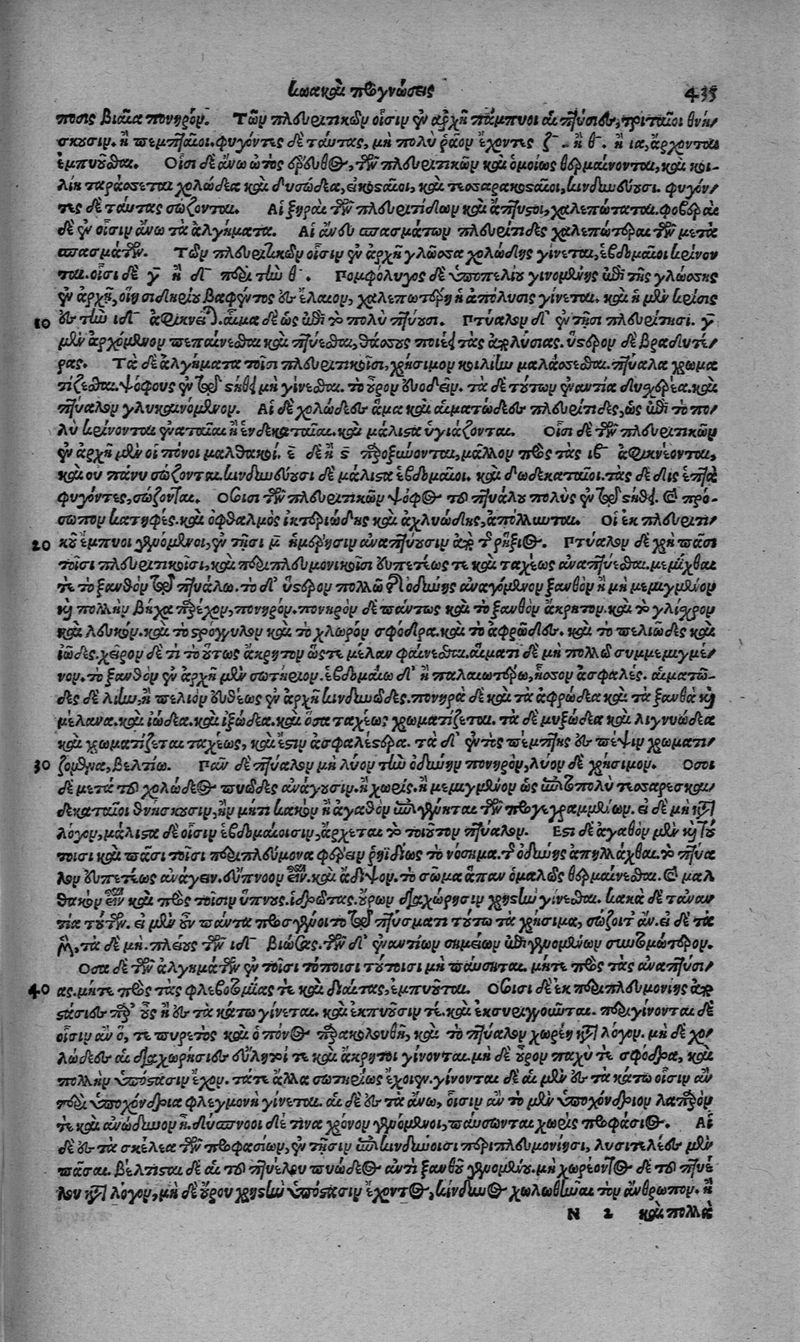 κωακαὶ προγνώσεις 435
ποσις βιαία πονηρόν. Τῶν πλευριτικῶν οἷσιν ἐν ἀρχῇ πάμπυοι αἱ πτύσιες, τριταῖοι θνή-
σκουσιν. ἢ πεμπταῖοι. φυγόντες δὲ ταύτας, μὴ πολὺ ῥᾷον ἔχοντες ζ. ἢ θ. ἢ ια, ἄρχονται
ἐμπυοῦσθαι. Οἷσι δὲ ἄνω ὠτὸς ἔρευθος, τῶν πλευριτικῶν καὶ ὁμοίως θερμαίνονται, καὶ κοι-
λίη ταράσσεται χολώδεα καὶ δυσώδεα, εἰκοσαῖοι, καὶ τεσσαρακοσταῖοι, κινδυνεύουσι. φυγόν-
τες δὲ ταύτας σώζονται. Αἱ ξηραὶ τῶν πλευριτίδων καὶ ἄπτυστοι, χαλεπώταται. φοβεραὶ
δὲ ἐν οἷσιν ἄνω τὰ ἀλγήματα. Αἱ ἄνευ σπασμάτων πλευρίτιδες χαλεπώτεραι τῶν μετὰ
σπασμάτων. Τῶν πλευριτικῶν οἷσιν ἐν ἀρχῇ γλῶσσα χολώδης γίνεται, ἑβδομαῖοι κρίνον
ται. οἷσι δὲ γ ἢ δ περὶ τὴν θ. Πομφόλυγος δὲ ὑποπελίου γινομένης ἐπὶ τῆς γλώσσης
ἐν ἀρχῇ, οἵη σιδηρίου βαφέντος ἐς ἔλαιον, χαλεπωτέρη ἡ ἀπόλυσις γίνεται. καὶ ἡ μὲν κρίσις
10 ἐς τὴν ιδ ἀφικνεῖται. αἷμα δὲ ὡς ἐπὶ τὸ πολὺ πτύουσι. Πτύαλον δ' ἐν τῇσι πλευρίτισι. γ
μὲν ἀρχόμενον πεπαίνεσθαι καὶ πτύεσθαι, θάσσους ποιεῖται τὰς ἀπολύσιας. ὕστερον δὲ βραδυτέ-
ρας. Τὰ δὲ ἀλγήματα τοῖσι πλευριτικοῖσι, χρήσιμον κοιλίην μαλάσσεσθαι. πτύαλα χρωμα
τίζεσθαι. ψόφους ἐν τῷ στήθει μὴ γίνεσθαι. τὸ οὖρον εὐοδεῖν. τὰ δὲ τούτων ἐναντία δυσχερέα. καὶ
πτύαλον γλυκαινόμενον. Αἱ δὲ χολώδεες ἅμα καὶ αἱματώδεες πλευρίτιδες, ὡς ἐπὶ τὸ πο-
λὺ κρίνονται ἐναταῖαι ἢ ἑνδεκαταῖαι. καὶ μάλιστα ὑγιάζονται. Οἷσι δὲ τῶν πλευριτικῶν
ἐν ἀρχῇ μὲν οἱ πόνοι μαλθακοί. ε δὲ ἢ ς παροξύνονται, μᾶλλον πρὸς τὰς ιβ ἀφικνέονται,
καὶ οὐ πάνυ σώζονται. κινδυνεύουσι δὲ μάλιστα ἑβδομαῖοι. καὶ δωδεκαταῖοι. τὰς δὲ δὶς ἑπτὰ
φυγόντες, σώζονται. Οἷσι τῶν πλευριτικῶν ψόφος τοῦ πτυάλου πολὺς ἐν τῷ στήθει. καὶ πρό-
σωπον κατηφές. καὶ ὀφθαλμὸς ἰκτεριώδης καὶ ἀχλυώδης, ἀπόλλυνται. Οἱ ἐκ πλευριτι-
20 κοῦ ἔμπυοι γενόμενοι, ἐν τῇσι μ ἡμέρῃσιν ἀναπτύουσιν ἀπὸ τῆς ῥήξιος. Πτύαλον δὲ χρὴ πᾶσι
τοῖσι πλευριτικοῖσι, καὶ περιπλευμονικοῖσι εὐπετέως τε καὶ ταχέως ἀναπτύεσθαι. μεμίχθαι
τε τὸ ξανθὸν τῷ πτυάλῳ. τὸ δ' ὕστερον πολλῷ τῆς ὀδύνης ἀναγόμενον ξανθὸν ἢ μὴ μεμιγμένον
καὶ πολλὴν βῆχα παρέχον, πονηρόν. πονηρὸν δὲ πάντως καὶ τὸ ξανθὸν ἄκρητον. καὶ τὸ γλίσχρον
καὶ λευκόν. καὶ τὸ στρογγύλον καὶ τὸ χλωρὸν σφόδρα. καὶ τὸ ἀφρῶδες. καὶ τὸ πελιῶδες καὶ
ἰῶδες. χεῖρον δὲ τὶ τὸ οὕτως ἄκρητον ὥστε μέλαν φαίνεσθαι. αἵματι δὲ μὴ πολλῷ συμμεμιγμέ-
νον. τὸ ξανθὸν ἐν ἀρχῇ μὲν σωτήριον. ἑβδομαίῳ δ' ἢ παλαιωτέρῳ, ἧσσον ἀσφαλές. αἱματῶ-
δες δὲ λίην, ἢ πελιὸν εὐθέως ἐν ἀρχῇ κινδυνῶδες. πονηρὰ δὲ καὶ τὰ ἀφρώδεα καὶ τὰ ξανθὰ καὶ
μέλανα. καὶ ἰώδεα. καὶ ἰξώδεα. καὶ ὅσα ταχέως χρωματίζεται. τὰ δὲ μυξώδεα καὶ λιγνυώδεα
καὶ χρωματίζεται ταχέως, καὶ ἔστιν ἀσφαλέστερα. τὰ δ' ἐντὸς πέμπτης ἐς πέψιν χρωματι-
30 ζόμενα, βελτίω. Πᾶν δὲ πτύαλον μὴ λύον τὴν ὀδύνην πονηρόν, λύον δὲ χρήσιμον. Ὅσοι
δὲ μετὰ τοῦ χολώδεος πυῶδες ἀνάγουσιν. ἢ χωρὶς. ἢ μεμιγμένον ὡς ἐπὶ τὸ πολὺ τεσσαρεσκαι-
δεκαταῖοι θνήσκουσιν, ἢν μήτι κακὸν ἢ ἀγαθὸν ἐπιγένηται τῶν προγεγραμμένων. εἰ δὲ μὴ κατὰ
λόγον, μάλιστα δὲ οἷσιν ἑβδομαίοισιν, ἄρχεται τὸ τοιοῦτον πτύαλον. Ἔστι δὲ ἀγαθὸν μὲν καὶ τού
τοισι καὶ πᾶσι τοῖσι περιπλεύμονα φέρειν ῥηϊδίως τὸ νόσημα. τῆς ὀδύνης ἀπηλλάχθαι. τὸ πτύα
λον εὐπετέως ἀνάγειν. εὔπνοον εἶναι. καὶ ἄδιψον. τὸ σῶμα ἅπαν ὁμαλῶς θερμαίνεσθαι. καὶ μαλ
θακὸν εἶναι καὶ πρὸς τοῖσιν ὕπνους. ἱδρῶτας. οὖρον διαχώρησιν χρηστὴν γίνεσθαι. κακὰ δὲ τἀναν
τία τούτων. εἰ μὲν οὖν πάντα προσγένοιτο τῷ πτύσματι τούτῳ τὰ χρήσιμα, σώζοιτ' ἄν. εἰ δὲ τὰ
μὲν, τὰ δὲ μή. πλείους τῶν ιδ βιώσας. τῶν δ' ἐναντίων σημείων ἐπιγενομένων συντομώτερον.
Ὅσα δὲ τῶν ἀλγημάτων ἐν τοῖσι τόποισι τούτοισι μὴ παύσηται. μήτε πρὸς τὰς ἀναπτύσι-
40 ας. μήτε πρὸς τὰς φλεβοτομίας τε καὶ διαίτας, ἐμπυοῦται. Οἷσι δὲ ἐκ περιπλευμονίης ἀπο
στάσιες παρ' οὖς ἢ ἐς τὰ κάτω γίνεται. καὶ ἐκπυοῦσιν τε. καὶ ἐκσυριγγοῦνται. περιγίνονται δὲ
οἷσιν ἂν ὅ, τε πυρετὸς καὶ ὁ πόνος παρακολουθῇ, καὶ τὸ πτύαλον χωρέῃ κατὰ λόγον. μὴ δὲ χο-
λώδεες αἱ διαχωρήσιες εὔλυτοί τε καὶ ἄκρητοι γίνονται. μὴ δὲ οὖρον παχύ τε σφόδρα, καὶ
πολλὴν ὑπόστασιν ἔχον. τά τε ἄλλα σωτηρίως ἔχοιεν. γίνονται δὲ αἱ μὲν ἐς τὰ κάτω οἷσιν ἂν
περὶ ὑποχόνδρια φλεγμονὴ γίνεται. αἱ δὲ ἐς τὰ ἄνω, οἷσιν ἂν τὸ μὲν ὑποχόνδριον λαπαρόν
τε καὶ ἀνώδυνον ᾖ. δυσπνοοι δέ τινα χρόνον γενόμενοι, παύσωνται χωρὶς προφάσιος. Αἱ
δὲ ἐς τὰ σκέλεα τῶν προφασίων, ἐν τῇσιν ἐπικινδύνοισι περιπλευμονίῃσι, λυσιτελέες μὲν
πᾶσαι. βέλτισται δὲ αἱ τοῦ πτυέλου πυώδεος ἀντὶ ξανθοῦ γενομένου. μὴ χωρέοντος δὲ τοῦ πτυέ
λου κατὰ λόγον, μὴ δὲ οὔρου χρηστὴν ὑπόστασιν ἔχοντος, κίνδυνος χωλωθῆναι τὸν ἄνθρωπον. ἢ
N 2 καὶ πολλὰ